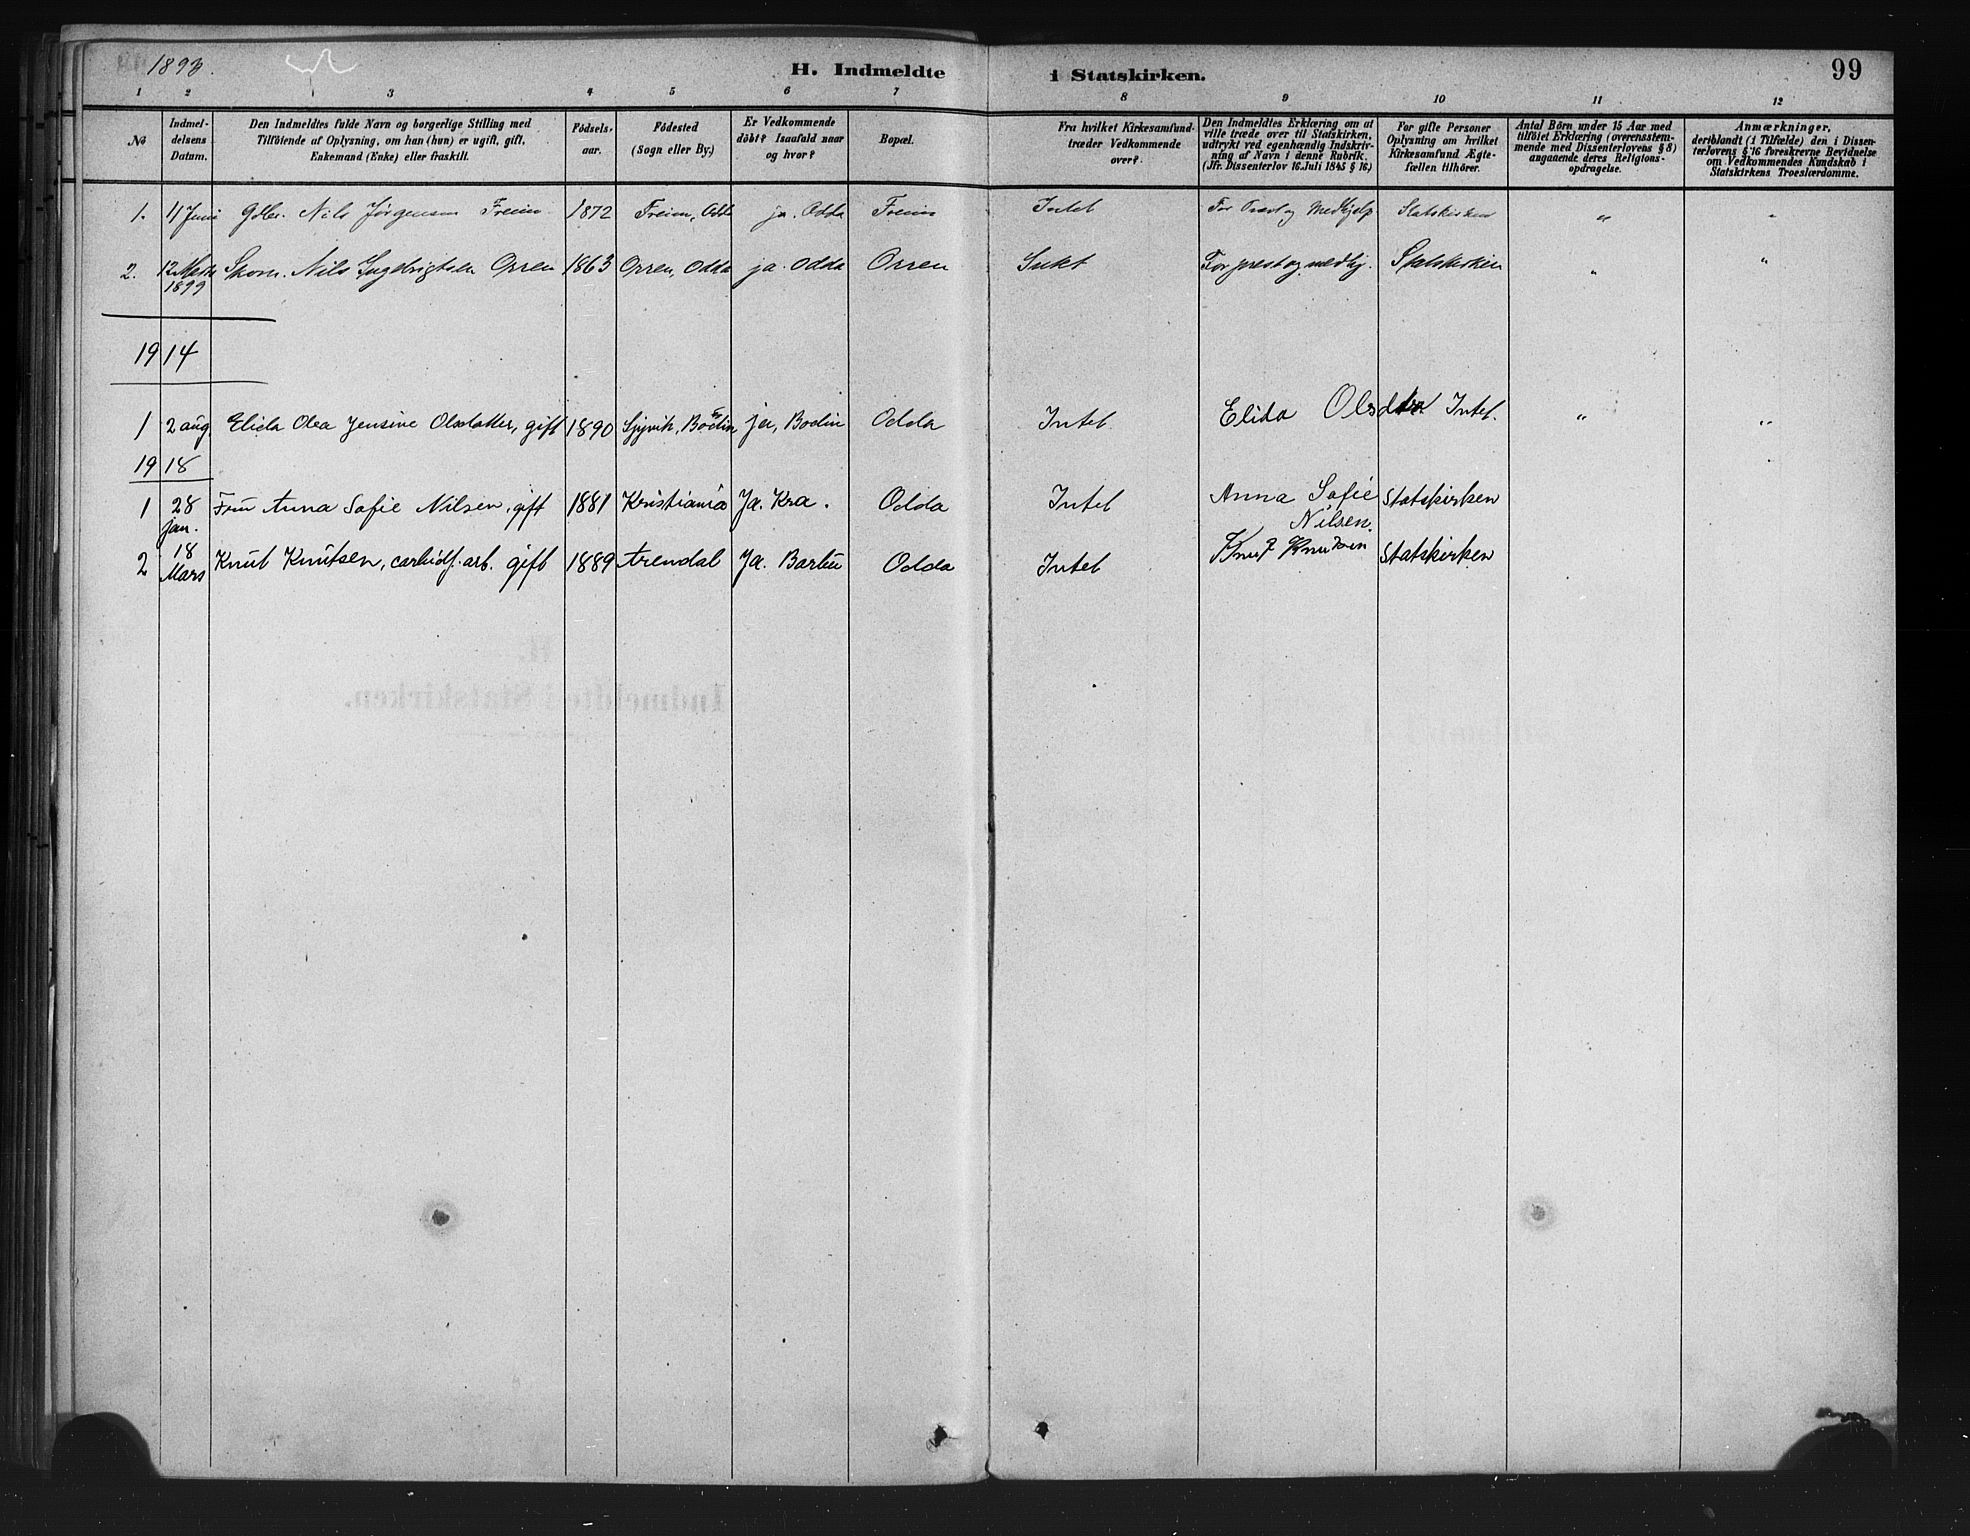 1893.
H. Indmeldte i Statskirken.
99
1 2 3 4 5 6 7 8 9 10 11 12
No
Indmeldelsens Datum.
Den Indmeldtes fulde Navn og borgerlige Stilling med
Tilföiende af Oplysning, om han (hun) er ugift, gift,
Enkemand (Enke) eller fraskilt.
Födselsaar.
Födested
(Sogn eller By.)
Er Vedkommende
döbt? Isaafald naar
og hvor?
Bopæl.
Fra hvilket Kirkesamfund
træder Vedkommende
over?
Den Indmeldtes Erklæring om at
ville træde over til Statskirken,
udtrykt ved egenhændig Indskrivning
af Navn i denne Rubrik.
(Jfr. Dissenterlov 16. Juli 1845 § 16.)
For gifte Personer
Oplysning om hvilket
Kirkesamfund Ægtefællen
tilhörer.
Antal Börn under 15 Aar med
tilföiet Erklæring (overensstemmende
med Dissenterlovens § 8)
angaaende deres Religionsopdragelse.
Anmærkninger,
deriblandt (i Tilfælde) den i Dissenterlovens
§ 16 foreskrevne Bevidnelse
om Vedkommendes Kundskab i
Statskirkens Troeslærdomme.
1. 11 Juni Gdbr. Nils Jørgensen Freim 1872 Freim, Odda ja. Odda Freim Intet For Præst og Medhjelp Statskirken " "
2. 12 Marts 1899 Skom. Nils Ingebrigtsen Orren 1863 Orren, Odda ja. Odda Orren Intet For prest og medhj. Statskirken " "
1914
1 2 aug Elida Olea Jensine Olsdatter, gift 1890 Bodin ja, Bodin Odda Intet Elida Olsdtr. Intet. " "
1918
1 28 jan. Fru Anna Sofie Nilsen, gift 1881 Kristiania Ja. Kra. Odda Intet Anna Sofie Nilsen. Statskirken
2 18 Mars Knut Knutsen, carbidf. arb. gift 1889 Arendal Ja. Barbu Odda Intet Knut Knutsen Statskirken